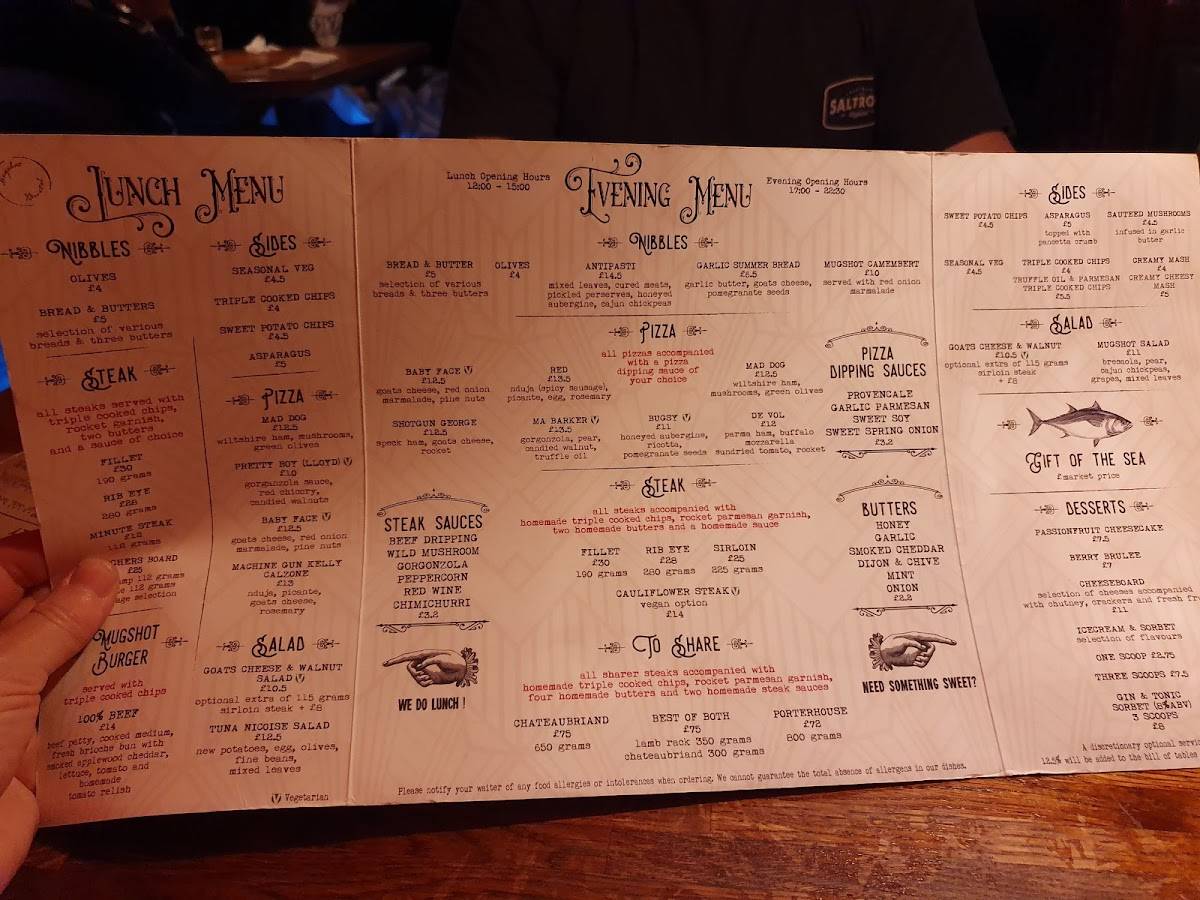 SALTRO
LUNCH MENU
NIBBLES
OLIVES
£4
BREAD & BUTTERS
£5
selection of various
breads & three butters
STEAK
all steaks served with
triple cooked chips,
rocket garnish,
two butters
and a sauce of choice
FILLET
£30
190 grams
RIB EYE
£28
280 grams
MINUTE STEAK
£12
112 grams
CHERS BOARD
£25
amp 112 grams
112 grams
age selection
MUGSHOT
BURGER
served with
triple cooked chips
100% BEEF
£14
beef patty, cooked medium,
fresh brioche bun with
smoked applewood cheddar,
lettuce, tomato and
homemade
tomato relish
SIDES
SEASONAL VEG
£4.5
TRIPLE COOKED CHIPS
£4
SWEET POTATO CHIPS
£4.5
ASPARAGUS
£5
PIZZA
MAD DOG
£12.5
wiltshire ham, mushrooms,
green olives
PRETTY BOY (LLOYD) V
£10
gorganzola sauce,
red chicory,
candied walnuts
BABY FACE V
£12.5
goats cheese, red onion
marmalade, pine nuts
MACHINE GUN KELLY
CALZONE
£13
nduja, picante,
goats cheese,
rosemary
SALAD
GOATS CHEESE & WALNUT
SALAD V
£10.5
optional extra of 115 grams
sirloin steak + £8
TUNA NICOISE SALAD
£12.5
new potatoes, egg, olives,
fine beans,
mixed leaves
V Vegetarian
Lunch Opening Hours
12:00 - 15:00
EVENING MENU
Evening Opening Hours
17:00 - 22:30
NIBBLES
BREAD & BUTTER
£5
selection of various
breads & three butters
OLIVES
£4
ANTIPASTI
£14.5
mixed leaves, cured meats,
pickled perserves, honeyed
aubergine, cajun chickpeas
GARLIC SUMMER BREAD
£6.5
garlic butter, goats cheese,
pomegranate seeds
MUGSHOT CAMEMBERT
£10
served with red onion
marmalade
PIZZA
all pizzas accompanied
with a pizza
dipping sauce of
your choice
BABY FACE V
£12.5
goats cheese, red onion
marmalade, pine nuts
RED
£13.5
nduja (spicy sausage),
picante, egg, rosemary
MAD DOG
£12.5
wiltshire ham,
mushrooms, green olives
SHOTGUN GEORGE
£12.5
speck ham, goats cheese,
rocket
MA BARKER V
£13.5
gorgonzola, pear,
candied walnut,
truffle oil
BUGSY V
£11
honeyed aubergine,
ricotta,
pomegranate seeds
DE VOL
£12
parma ham, buffalo
mozzarella
sundried tomato, rocket
PIZZA
DIPPING SAUCES
PROVENCALE
GARLIC PARMESAN
SWEET SOY
SWEET SPRING ONION
£3.2
STEAK
all steaks accompanied with
homemade triple cooked chips, rocket parmesan garnish,
two homemade butters and a homemade sauce
FILLET
£30
190 grams
RIB EYE
£28
280 grams
SIRLOIN
£25
225 grams
CAULIFLOWER STEAK V
vegan option
£14
STEAK SAUCES
BEEF DRIPPING
WILD MUSHROOM
GORGONZOLA
PEPPERCORN
RED WINE
CHIMICHURRI
£3.2
WE DO LUNCH !
BUTTERS
HONEY
GARLIC
SMOKED CHEDDAR
DIJON & CHIVE
MINT
ONION
£2.2
NEED SOMETHING SWEET?
TO SHARE
all sharer steaks accompanied with
homemade triple cooked chips, rocket parmesan garnish,
four homemade butters and two homemade steak sauces
CHATEAUBRIAND
£75
650 grams
BEST OF BOTH
£75
lamb rack 350 grams
chateaubriand 300 grams
PORTERHOUSE
£72
800 grams
Please notify your waiter of any food allergies or intolerances when ordering. We cannot guarantee the total absence of allergens in our dishes.
SIDES
SWEET POTATO CHIPS
£4.5
ASPARAGUS
£5
topped with
pancetta crumb
SAUTEED MUSHROOMS
£4.5
infused in garlic
butter
SEASONAL VEG
£4.5
TRIPLE COOKED CHIPS
£4
TRUFFLE OIL & PARMESAN
TRIPLE COOKED CHIPS
£5.5
CREAMY MASH
£4
CREAMY CHEESY
MASH
£5
SALAD
GOATS CHEESE & WALNUT
£10.5 V
optional extra of 115 grams
sirloin steak
+ £8
MUGSHOT SALAD
£11
bresaola, pear,
cajun chickpeas,
grapes, mixed leaves
GIFT OF THE SEA
£ market price
DESSERTS
PASSIONFRUIT CHEESECAKE
£7.5
BERRY BRULEE
£7
CHEESEBOARD
selection of cheeses accompanied
with chutney, crackers and fresh fr
£11
ICECREAM & SORBET
selection of flavours
ONE SCOOP £2.75
THREE SCOOPS £7.5
GIN & TONIC
SORBET (8%ABV)
3 SCOOPS
£8
A discretionary optional servic
12.5% will be added to the bill of tables